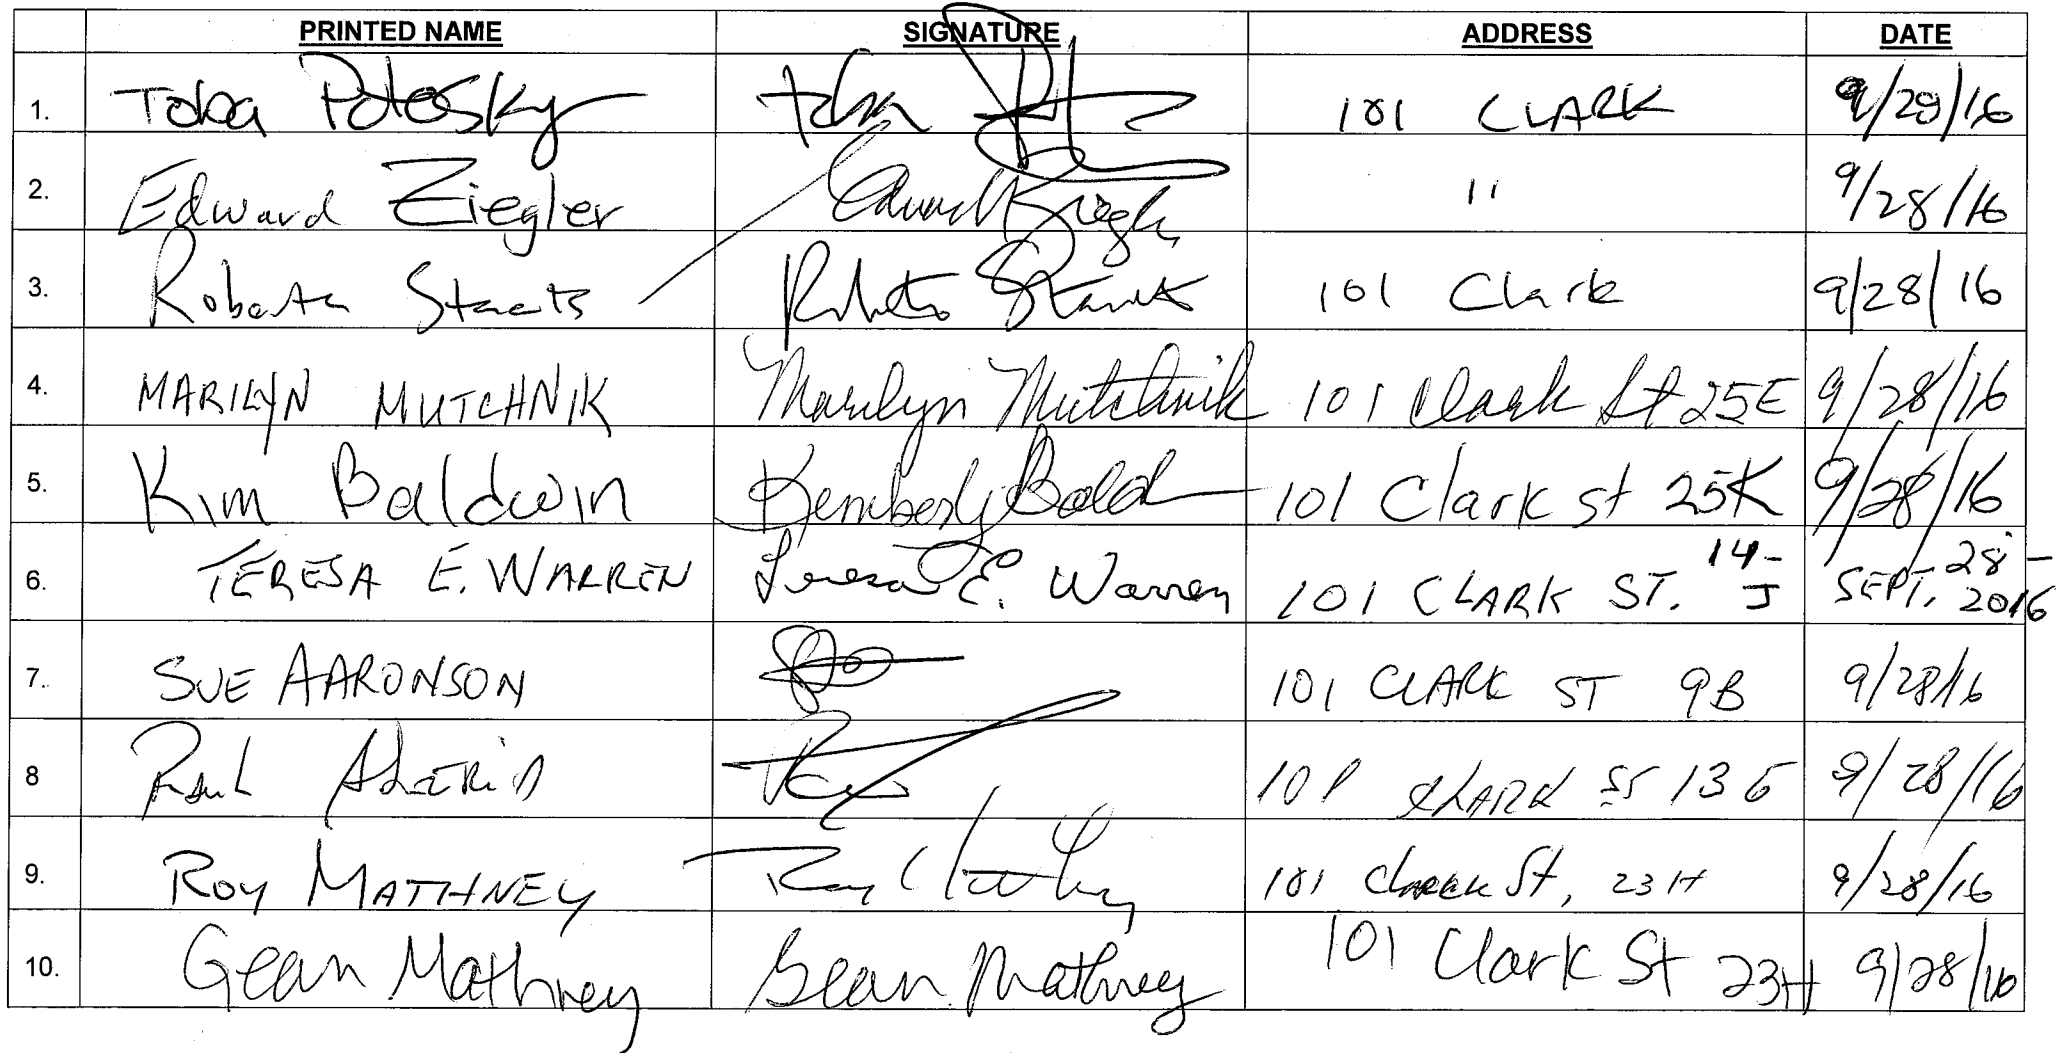 PRINTED NAME SIGNATURE ADDRESS DATE
1. Toba Potosky Toba 101 CLARK 9/28/16
2. Edward Ziegler Edward Ziegler " 9/28/16
3. Roberta Staats Roberta Staats 101 Clark 9/28/16
4. MARILYN MUTCHNIK Marilyn Mutchnik 101 Clark St 25E 9/28/16
5. Kim Baldwin Kimberly Bald 101 Clark st 25K 9/28/16
6. TERESA E. WARREN Teresa E. Warren 101 CLARK ST. 14-J SEPT. 28-2016
7. SUE AARONSON 101 CLARK ST 9B 9/28/16
8 101 CLARK ST 13 9/28/16
9. ROY MATHNEY Roy 101 Clark St, 23H 9/28/16
10. Gean Mathney Gean Mathney 101 Clark St 23H 9/28/16